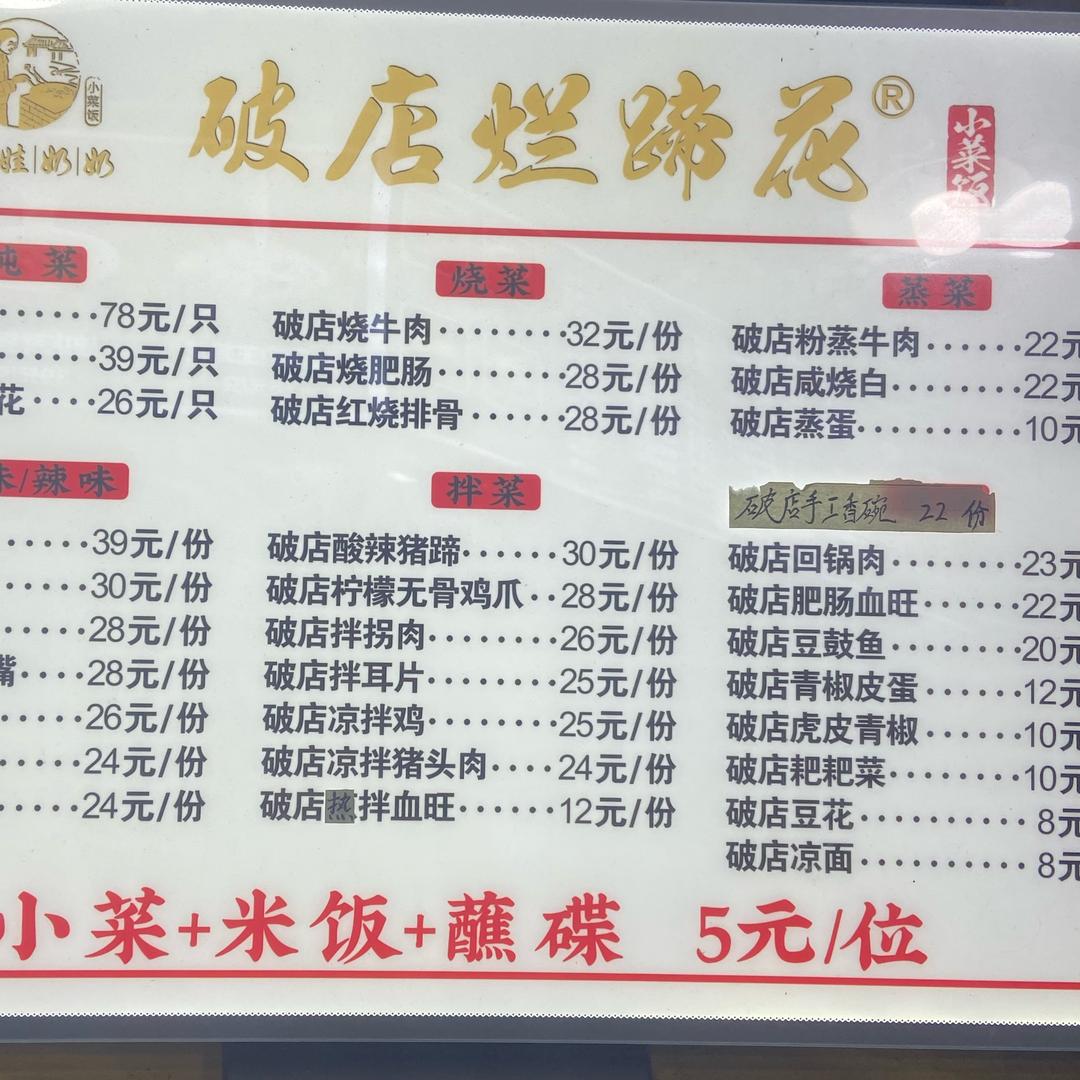 破店烂蹄花®
小菜饭
小菜饭
娃|奶|奶
炖菜
78元/只
39元/只
花····26元/只
烧菜
破店烧牛肉········32元/份
破店烧肥肠········28元/份
破店红烧排骨······28元/份
蒸菜
破店粉蒸牛肉······22元
破店咸烧白········22元
破店蒸蛋··········10元
味/辣味
39元/份
30元/份
28元/份
嘴····28元/份
26元/份
24元/份
24元/份
拌菜
破店酸辣猪蹄······30元/份
破店柠檬无骨鸡爪··28元/份
破店拌拐肉········26元/份
破店拌耳片········25元/份
破店凉拌鸡········25元/份
破店凉拌猪头肉····24元/份
破店热拌血旺······12元/份
破店手工香碗 22 份
破店回锅肉········23元
破店肥肠血旺······22元
破店豆鼓鱼········20元
破店青椒皮蛋······12元
破店虎皮青椒······10元
破店耙耙菜········10元
破店豆花··········8元
破店凉面··········8元
小菜+米饭+蘸碟 5元/位